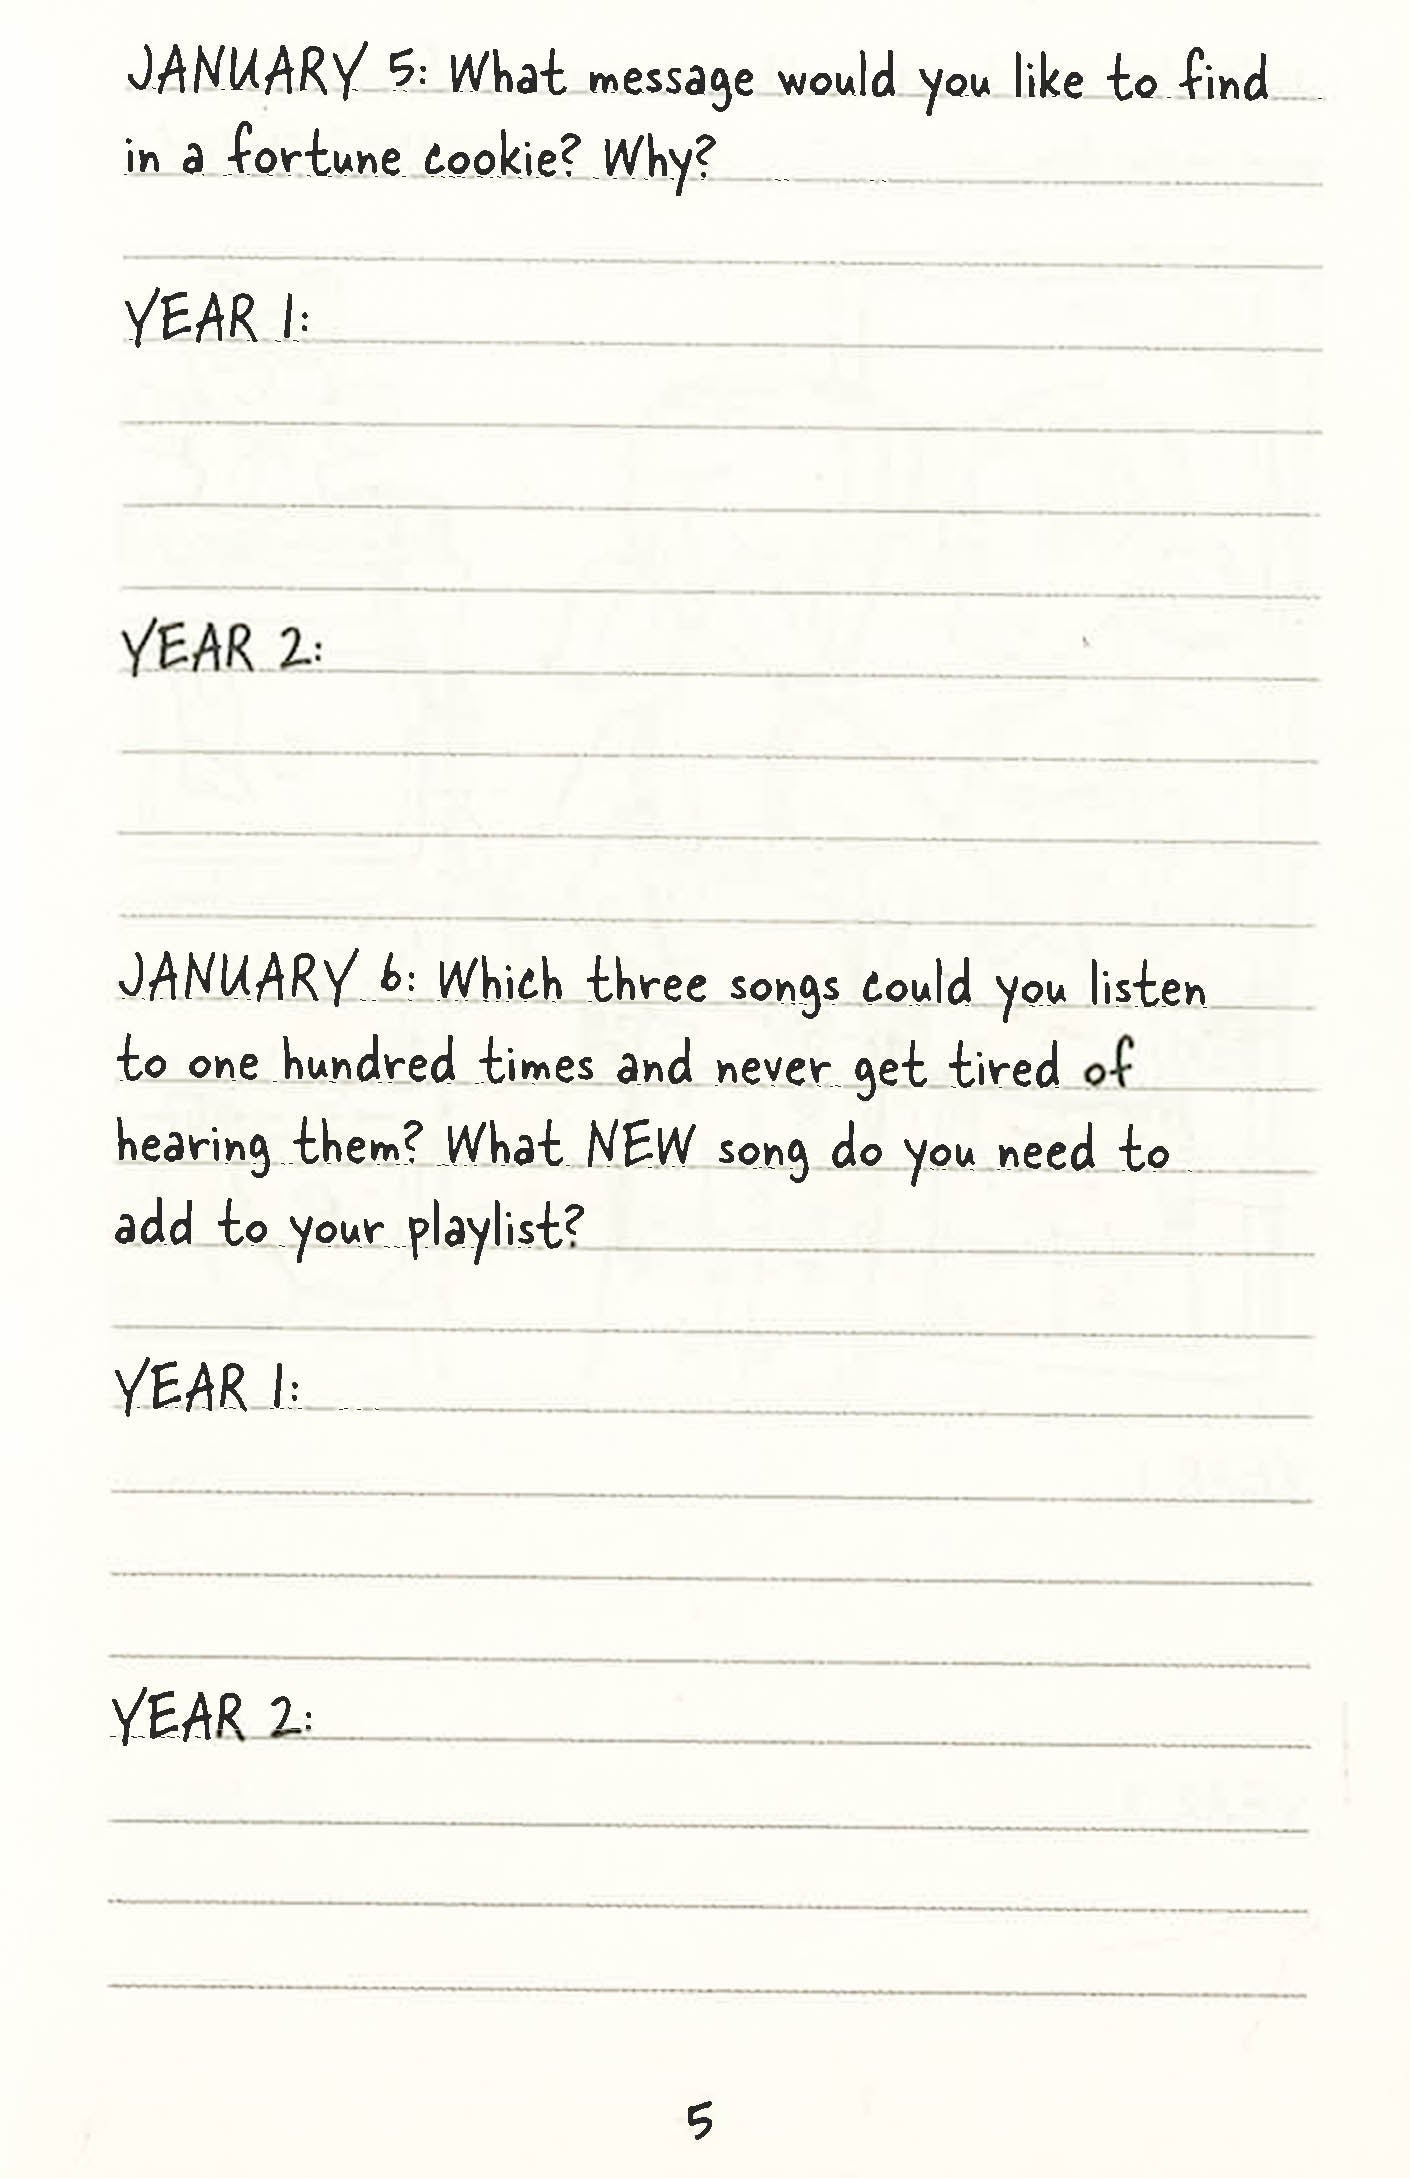 JANUARY 5: What message would you like to find
in a fortune cookie? Why?
YEAR 1:
YEAR 2:
JANUARY 6: Which three songs could you listen
to one hundred times and never get tired of
hearing them? What NEW song do you need to
add to your playlist?
YEAR 1:
YEAR 2:
5